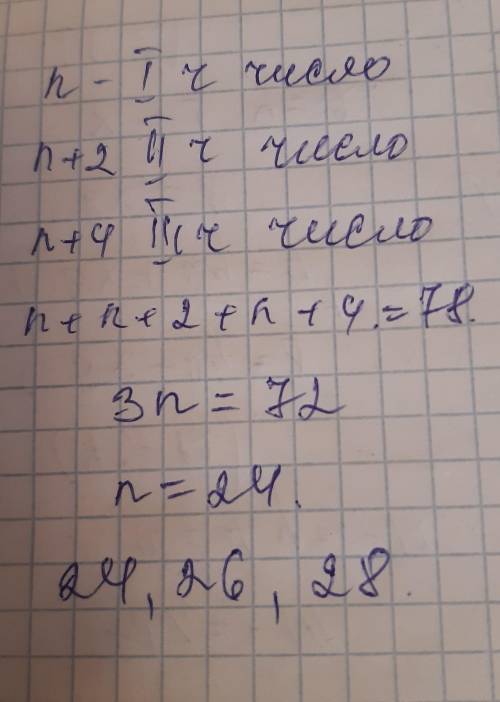 n - I ч число
n+2 II ч число
n+4 III ч число
n+n+2+n+4.=78.
3n=72
n=24.
24, 26, 28.